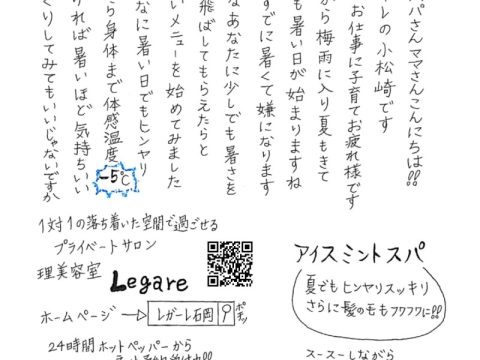 パさんママさんこんにちは!!
レの小松崎です
お仕事に子育てお疲れ様です
から梅雨に入り夏もきて
も暑い日が始まりますね
すでに暑くて嫌になります
なあなたに少しでも暑さを
飛ばしてもらえたらと
いメニューを始めてみました
なに暑い日でもヒンヤリ
ら身体まで体感温度-5℃
ければ暑いほど気持ちいい
くりしてみてもいいじゃないですか
1対1の落ち着いた空間で過ごせる
プライベートサロン
理美容室 Legare
ホームページ→レガーレ石岡
24時間ホットペッパーから
アイスミントスパ
夏でもヒンヤリスッキリ
さらに髪の毛もフワフワに!!
スースーしながら